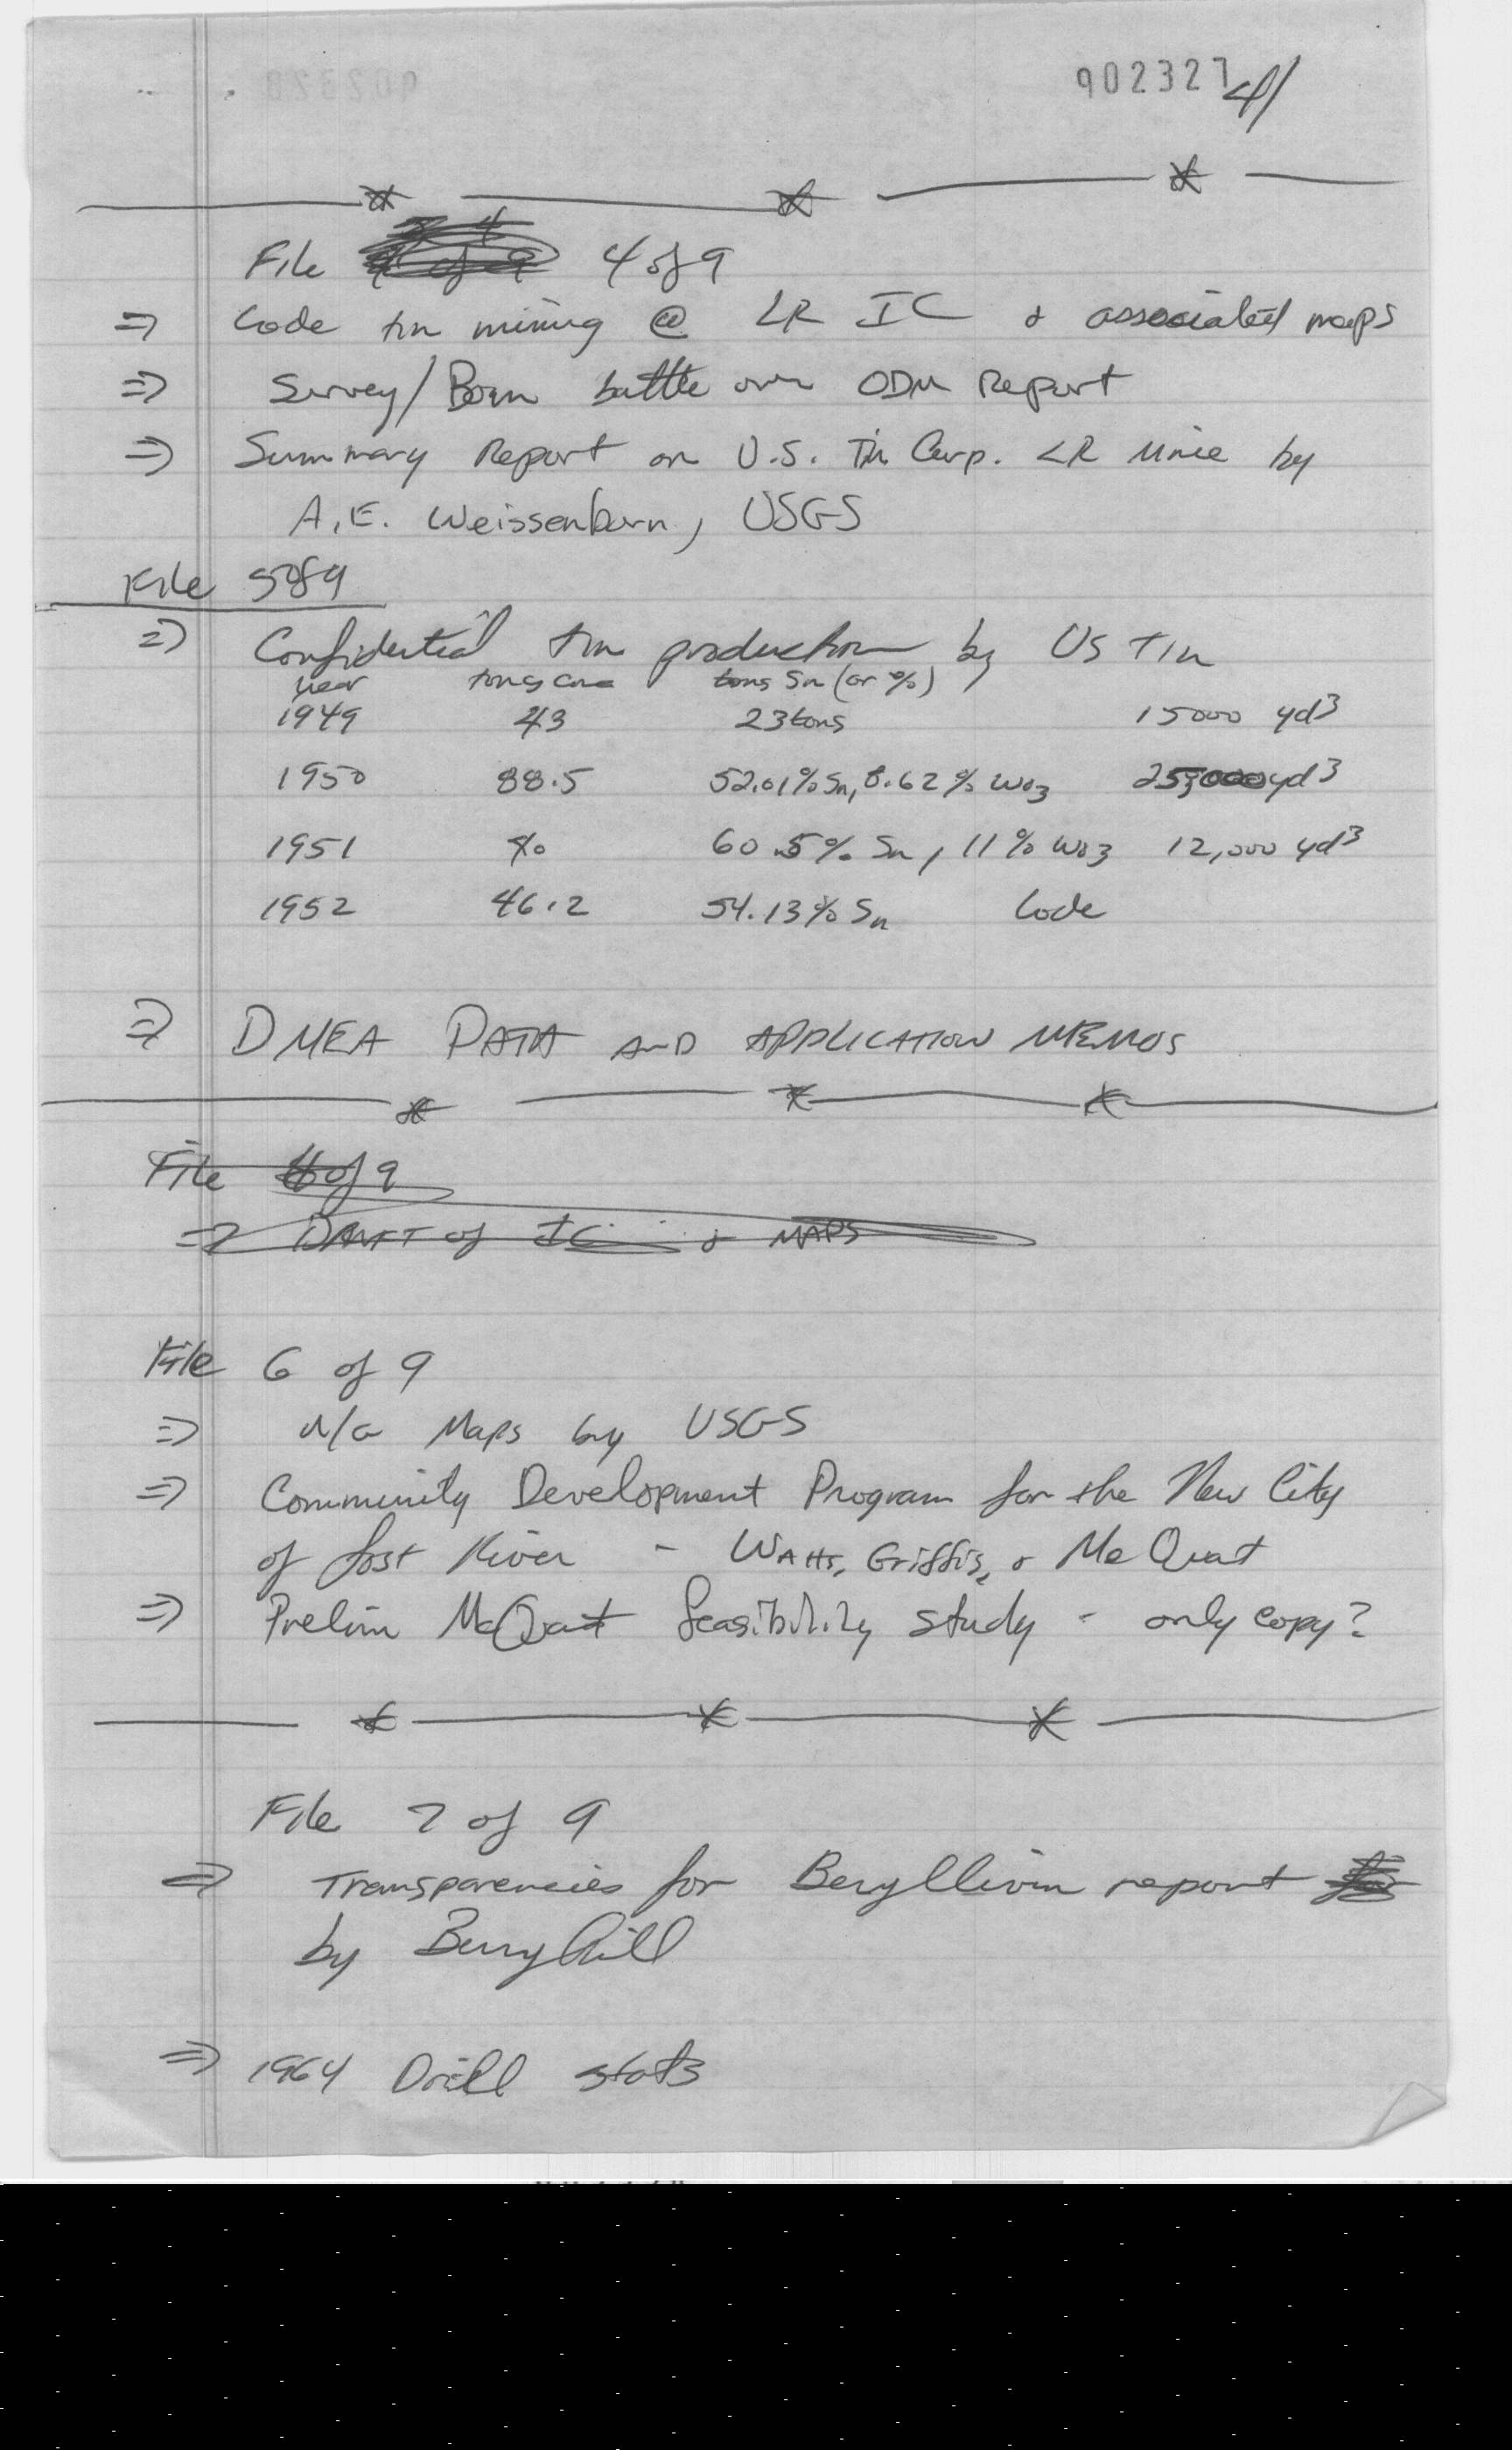 902327 4/
File 4 of 9
⇒ Lode tin mining @ LR IC & associated maps
⇒ Survey/Bom battle over ODM Report
⇒ Summary Report on U.S. Tin Corp. LR Mine by
A.E. Weissenborn, USGS
File 5 of 9
⇒ Confidential tin production by US Tin
year tons conc tons Sn (or %)
1949 43 23 tons 15000 yd3
1950 88.5 52.01% Sn, 8.62% WO3 25,000 yd3
1951 40 60.5% Sn, 11% WO3 12,000 yd3
1952 46.2 54.13% Sn Lode
⇒ DMEA DATA AND APPLICATION MEMOS
File 6 of 9
⇒ DRAFT of IC & MAPS
File 6 of 9
⇒ U/G Maps by USGS
⇒ Community Development Program for the New City
of Lost River - Watts, Griffis, & McQuat
⇒ Prelim McQuat feasibility study - only copy?
File 7 of 9
⇒ Transparencies for Beryllium report
by Berryhill
⇒ 1964 Drill stats